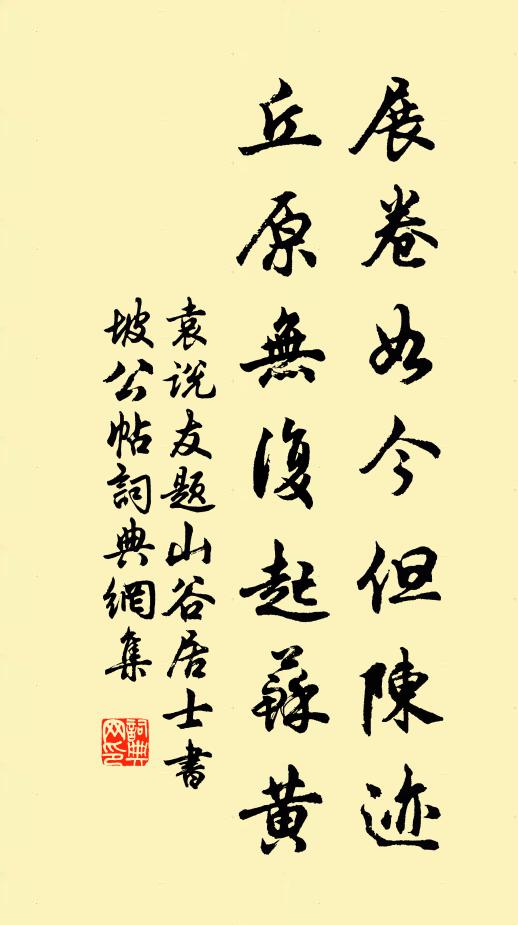 展卷如今但陳迹
丘原無復起蘇黄
袁説友題山谷居士書
坡公帖詞典網集
詞典网印